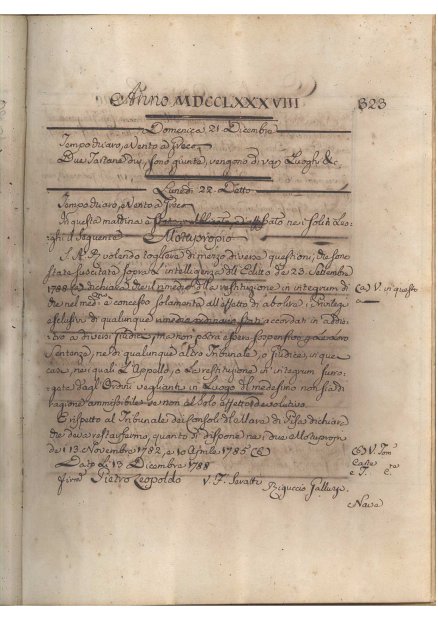 Anno MDCCLXXXVIII 323
Domenica 21 Dicembre
Tempo chiaro, e Vento a Greco
Due Tartane che sono giunte, vengono di varj Luoghi &c.
Lunedì 22 Detto
Tempo chiaro, e Vento a Greco
In questa mattina è stato pubblicato, ed affissato nei soliti Luo-
ghi il seguente Motuproprio
S. A. R. volendo togliere di mezzo diverse questioni, che sono
state suscitate sopra l'intelligenza dell'Editto de' 23. Settembre
1788 (a) dichiara che il rimedio della restituzione in integrum di (a) V. in questo
che nel med.mo è concesso solamente all'effetto di abolire i Privilegj a
esclusivi di qualunque rimedio ordinario stati accordati in addie-
tro a diversi Giudici, ma non potrà essere sospensivo
Sentenza, nè di qualunque altro Tribunale, o Giudice, in que
casi, nei quali l'Appello, o la restituzione in integrum surro-
gata dagli Ordini veglianti in Luogo del medesimo non sia di
ragione ammissibile se non al solo effetto devolutivo.
E rispetto al Tribunale dei Consoli di Mare di Pisa dichiara
che deva restar fermo, quanto si dispone nei due Motuproprj
de' 13 Novembre 1782, e 10 Aprile 1785 (b) (b) V. Tom
Dato li 13 Dicembre 1788
firm. Pietro Leopoldo V. F. Seratti
Nave